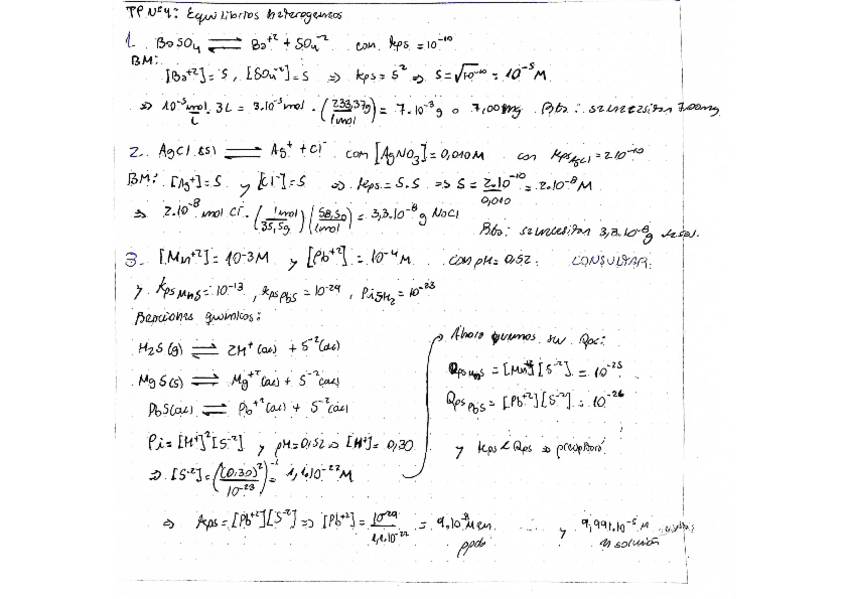 TP Nº4: Equilibrios heterogeneos
1. BaSO₄ ⇌ Ba⁺² + SO₄⁻² con kps = 10⁻¹⁰
BM:
[Ba⁺²] = S, [SO₄⁻²] = S ⇒ kps = S² ⇒ S = √10⁻¹⁰ = 10⁻⁵ M
⇒ 10⁻⁵ mol/L . 3L = 3.10⁻⁵ mol . (233,37g / 1mol) = 7.10⁻³ g o 7,00 mg Rta: se necesitan 7,00mg
2. AgCl (s) ⇌ Ag⁺ + Cl⁻ con [AgNO₃] = 0,010M con kps AgCl = 2.10⁻¹⁰
BM: [Ag⁺] = S y [Cl⁻] = S ⇒ kps = S.S ⇒ S = 2.10⁻¹⁰ / 0,010 = 2.10⁻⁸ M
⇒ 2.10⁻⁸ mol Cl⁻ . (1mol / 35,5g) (58,50 / 1mol) = 3,3.10⁻⁸ g NaCl
Rta: se necesitan 3,3.10⁻⁸g
3. [Mn⁺²] = 10⁻³M y [Pb⁺²] = 10⁻⁴ M con pH = 0,52. CONSULTAR.
y kps MnS = 10⁻¹³, kps PbS = 10⁻²⁹, Pi SH₂ = 10⁻²³
Reacciones químicas:
H₂S (g) ⇌ 2H⁺ (ac) + S⁻² (ac)
MgS (s) ⇌ Mg⁺² (ac) + S⁻² (ac)
PbS (ac) ⇌ Pb⁺² (ac) + S⁻² (ac)
Pi = [H⁺]² [S⁻²] y pH = 0,52 ⇒ [H⁺] = 0,30
⇒ [S⁻²] = ((0,30)² / 10⁻²³)⁻¹ = 1,1.10⁻²² M
Ahora queremos Qps:
Qps MnS = [Mn⁺²] [S⁻²] = 10⁻²⁵
Qps PbS = [Pb⁺²] [S⁻²] = 10⁻²⁶
y kps < Qps ⇒ precipitará
⇒ kps = [Pb⁺²] [S⁻²] ⇒ [Pb⁺²] = 10⁻²⁹ / 1,1.10⁻²² = 9.10⁻⁸ M en ppdo y 9,991.10⁻⁵ M
solución